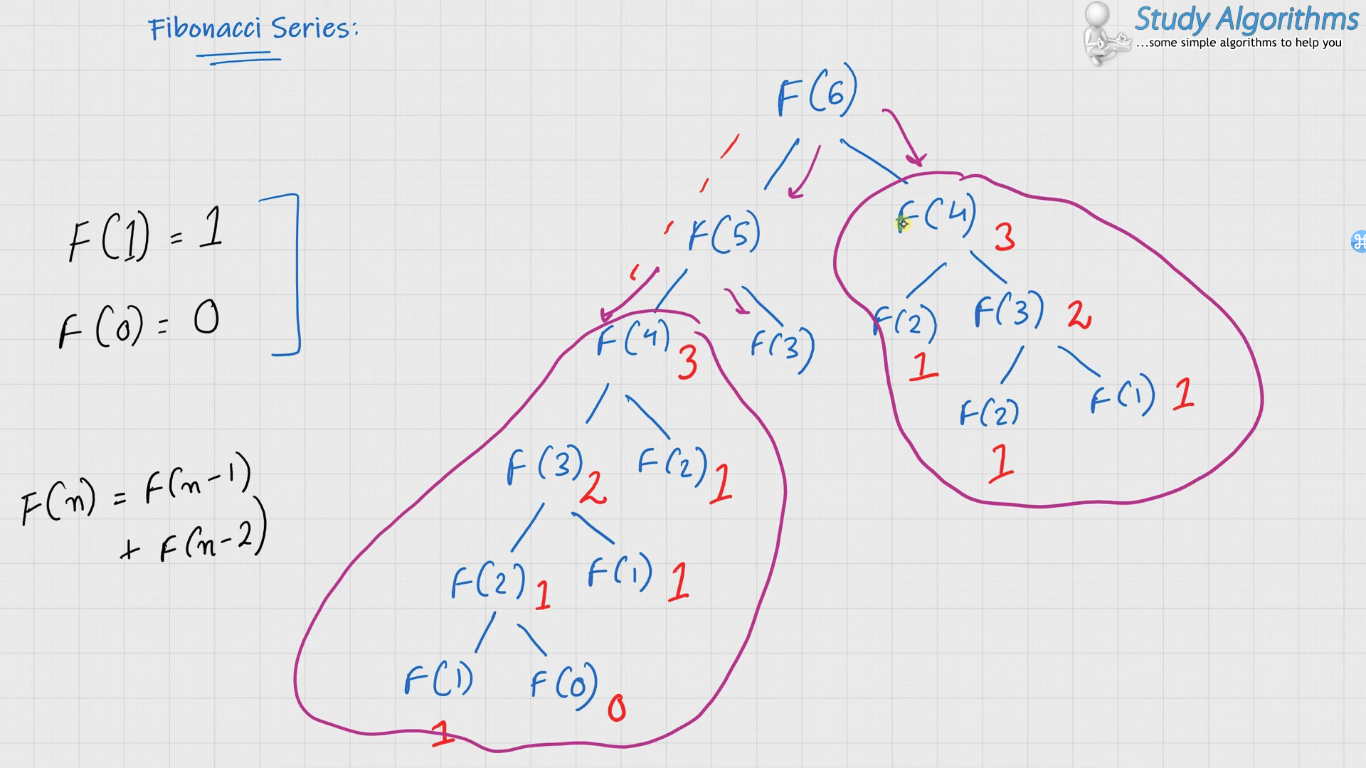 Fibonacci Series:
Study Algorithms
...some simple algorithms to help you
F(1) = 1
F(0) = 0
F(n) = F(n-1)
+ F(n-2)
F(6)
F(5)
F(4) 3
F(4) 3
F(3)
F(2) 1
F(3) 2
F(2) 1
F(1) 1
F(3) 2
F(2) 1
F(2) 1
F(1) 1
F(1) 1
F(0) 0